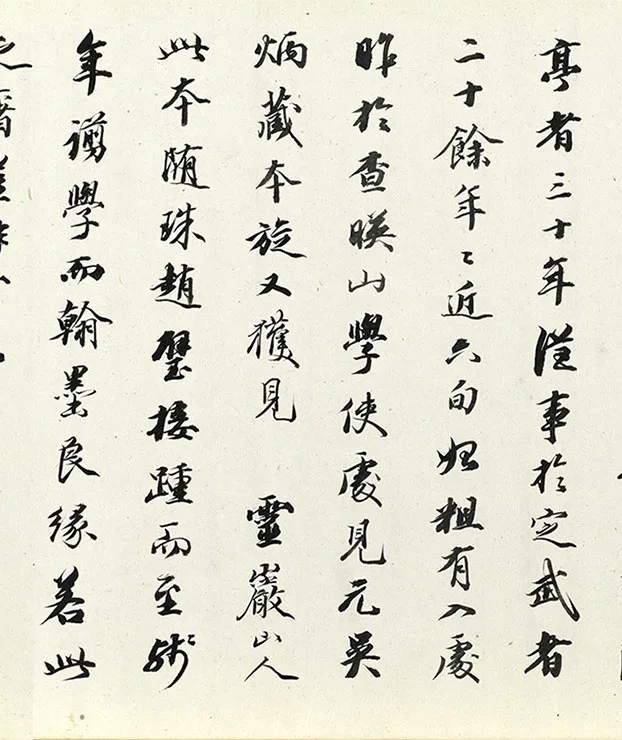 亭者三十年從事於定武者
二十餘年〻近六旬始粗有入處
昨於查暎山學使處見元吳
炳藏本旋又獲見 靈巖山人
此本随珠趙璧接踵而至
年謭學而翰墨良緣若此